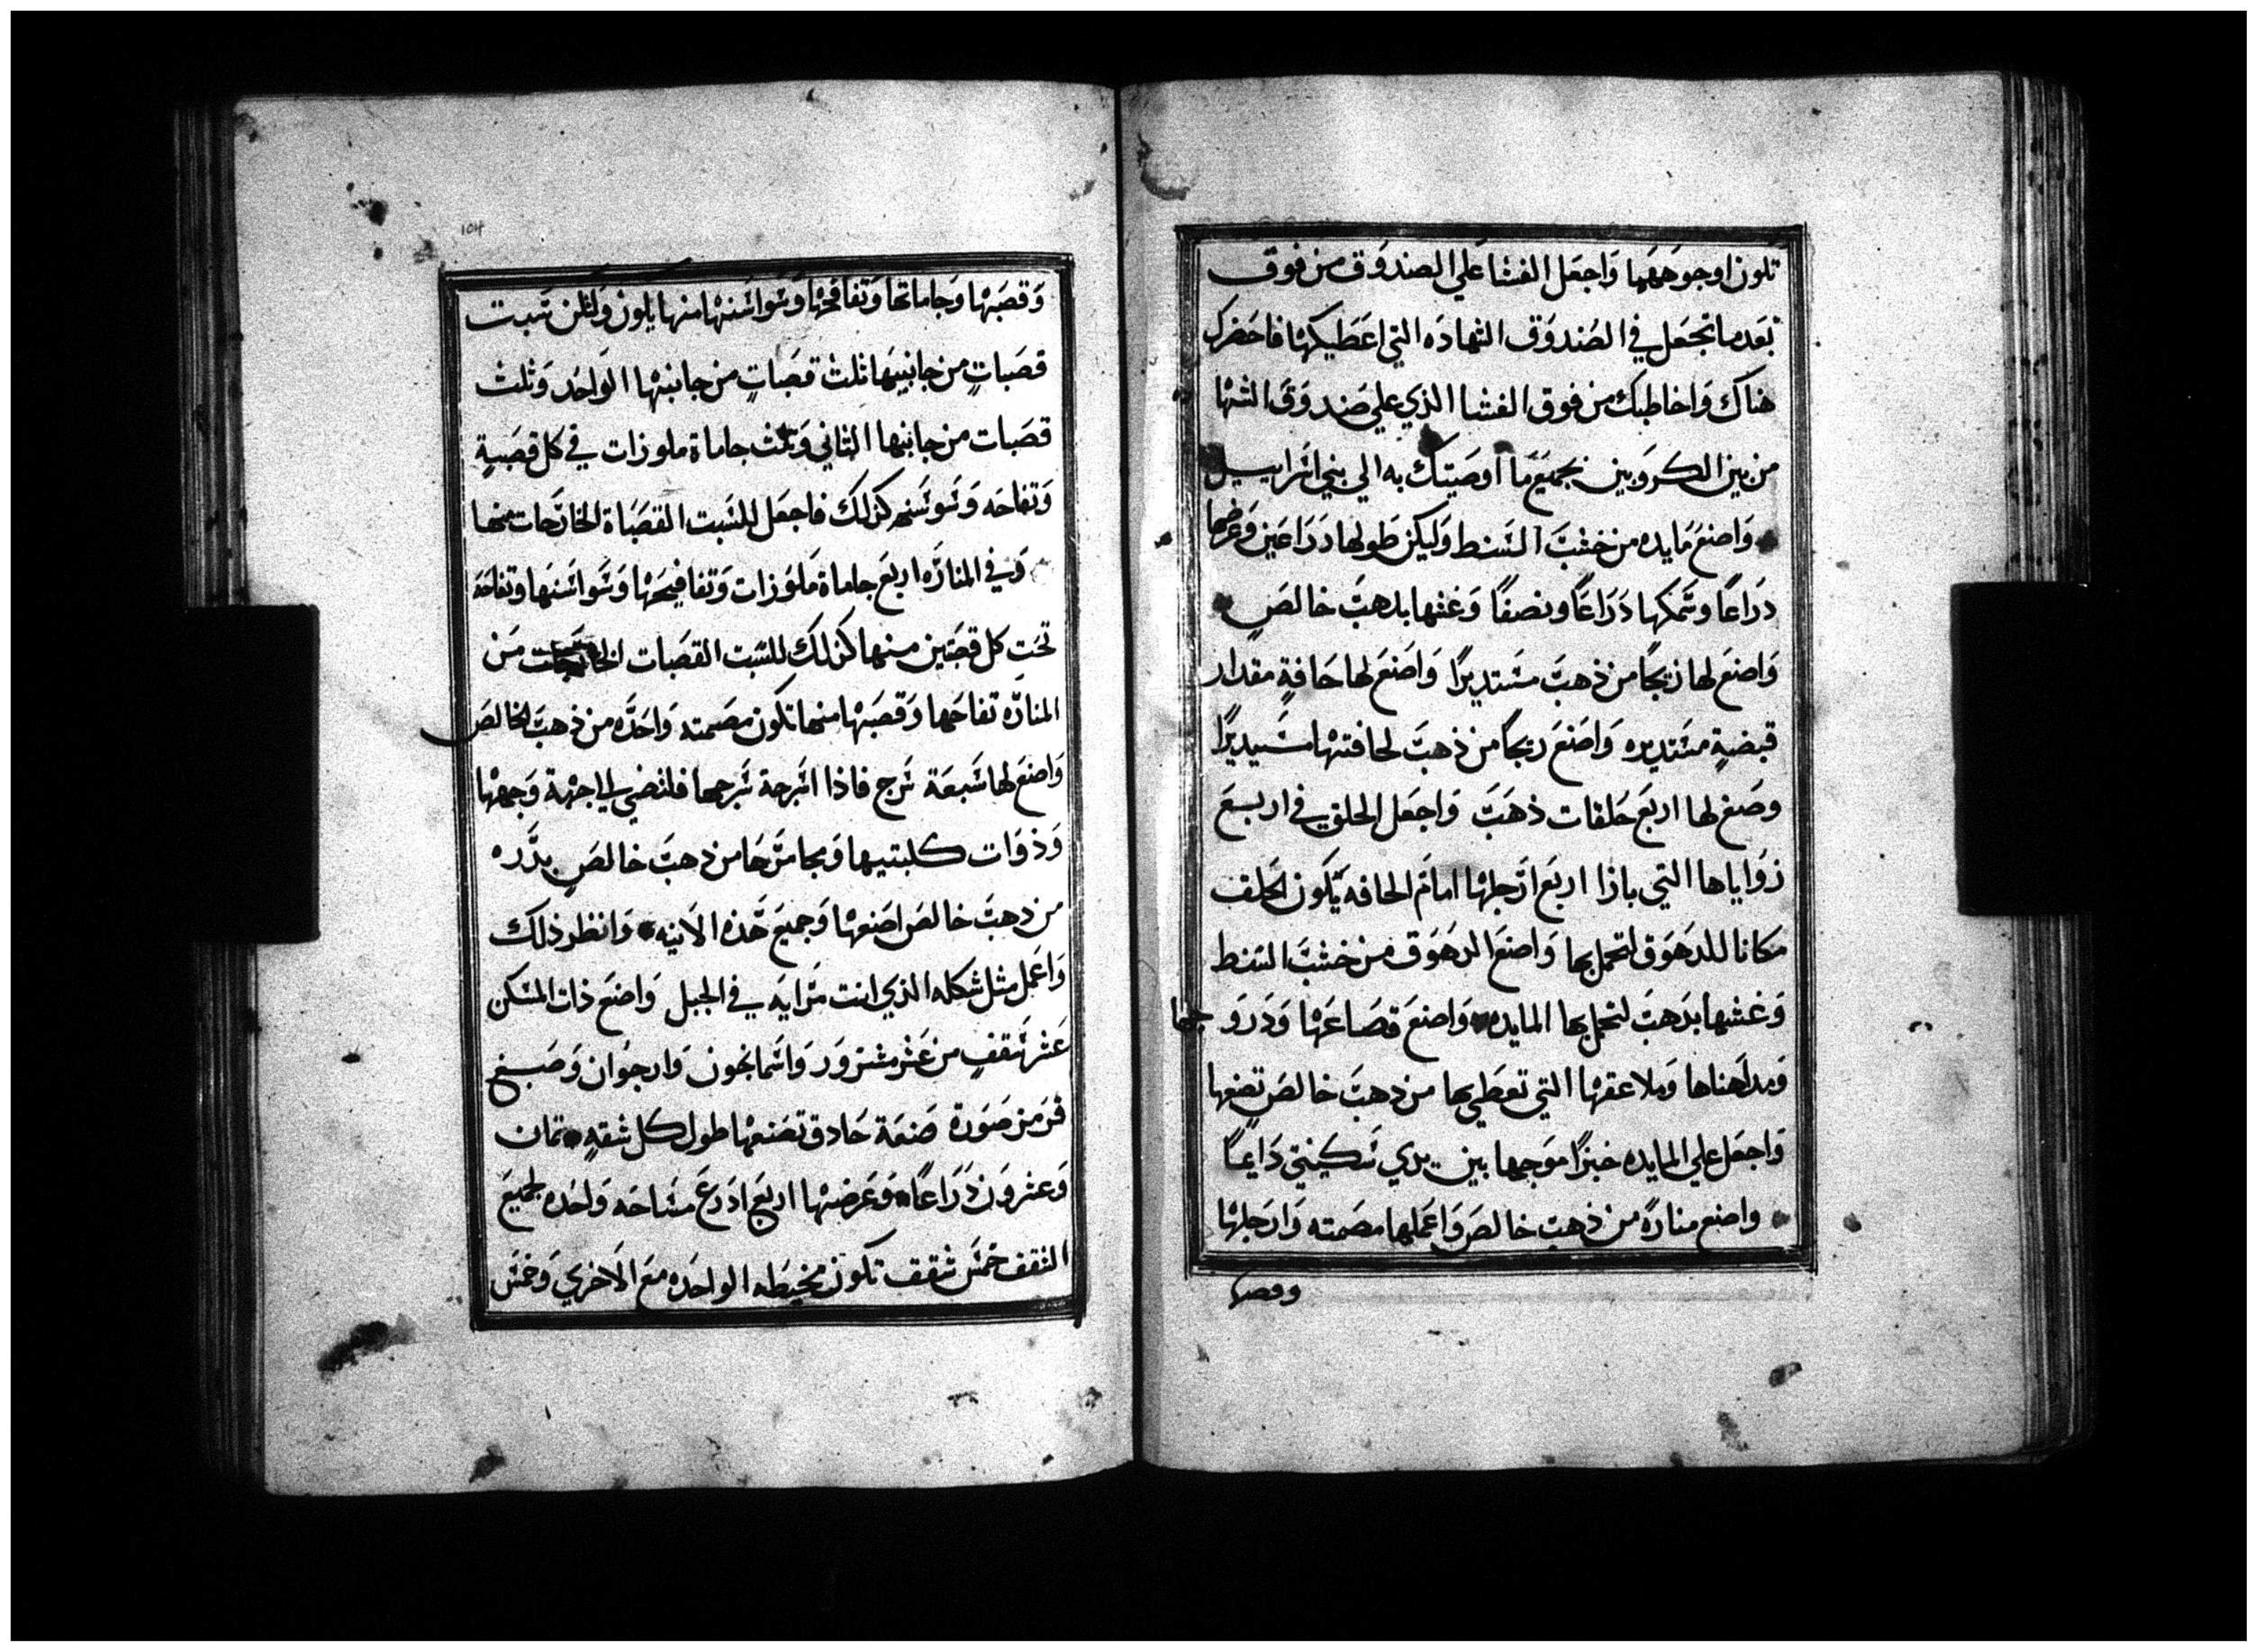 تلون اوجوههما واجعل الغشا علي الصندوق من فوق
بعد ما تجعل في الصندوق الشهاده التي اعطيكها فاحضرك
هناك واخاطبك من فوق الغشا الذي علي صندوق الشها
من بين الكروبين بجميع ما اوصيتك به الي بني اسراييل
واصنع مايده من خشب السنط وليكن طولها دراعين وعرضها
دراعا وسمكها دراعا ونصفا وغشها بدهب خالص
واصنع لها زيجا من ذهب مستديرا واصنع لها حافة مقدار
قبضة مستديره واصنع زيجا من ذهب لحافتها مستديرا
وصنع لها اربع حلقات ذهب واجعل الحلق في اربع
زواياها التي بازا اربع ارجلها امام الحافه يكون الحلق
مكانا للدهوق لتحمل بها واصنع الدهوق من خشب السنط
وغشها بدهب لتحمل بها المايده واصنع قصاعها ودروجها
ومداهناها وملاعقها التي تعطي بها من دهب خالص تصنعها
واجعل علي المايده خبزا موجها بين يدي سكينتي دايما
واصنع منارة من ذهب خالص واعملها مصمته وارجلها
وقصبها
104
وقصبها وجاماتها وتفافحها وسواسنها منها يلون ولتكن ستت
قصبات من جانبيها ثلث قصبات من جانبها الواحد وثلث
قصبات من جانبها الثاني وثلث جاماة ملوزات في كل قصبة
وتفاحه وسوسنه كذلك فاجعل للست القصباة الخارجات منها
وفي المناره اربع جاماة ملوزات وتفافيحها وسواسنها وتفاحة
تحت كل قصبتين منها كذلك للست القصبات الخارجات من
المناره تفاحها وقصبها منها تكون مصمته واحده من ذهب الخالص
واصنع لها سبعة سرج فاذا اسرجة سرجها فلتضي الي اجهة وجهها
وذوات كلبتيها ومجامرها من ذهب خالص بدره
من دهب خالص اصنعها وجميع هذه الانيه وانظر ذلك
واعمل مثل شكله الذي انت مرايه في الجبل واصنع ذات المسكن
عشر شقف من عشر مشزور واسمانجون وارجوان وصبغ
قرمز صورة صنعة حادق تصنعها طول كل شقه ثمان
وعشرون دراعا وعرضها اربع ادرع مساحه واحده لجميع
الشقف خمس شقف تكون مخيطه الواحده مع الاخري وخمس